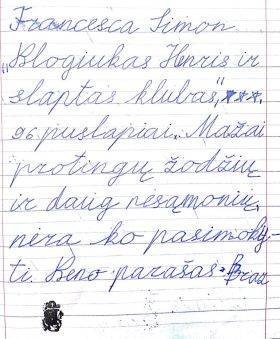 Francesca Simon
„Blogiukas Henris ir
slaptas klubas", ***.
96 puslapiai. Mažai
protingų žodžių
ir daug nesąmonių,
nėra ko pasimoky-
ti. Beno parašas: